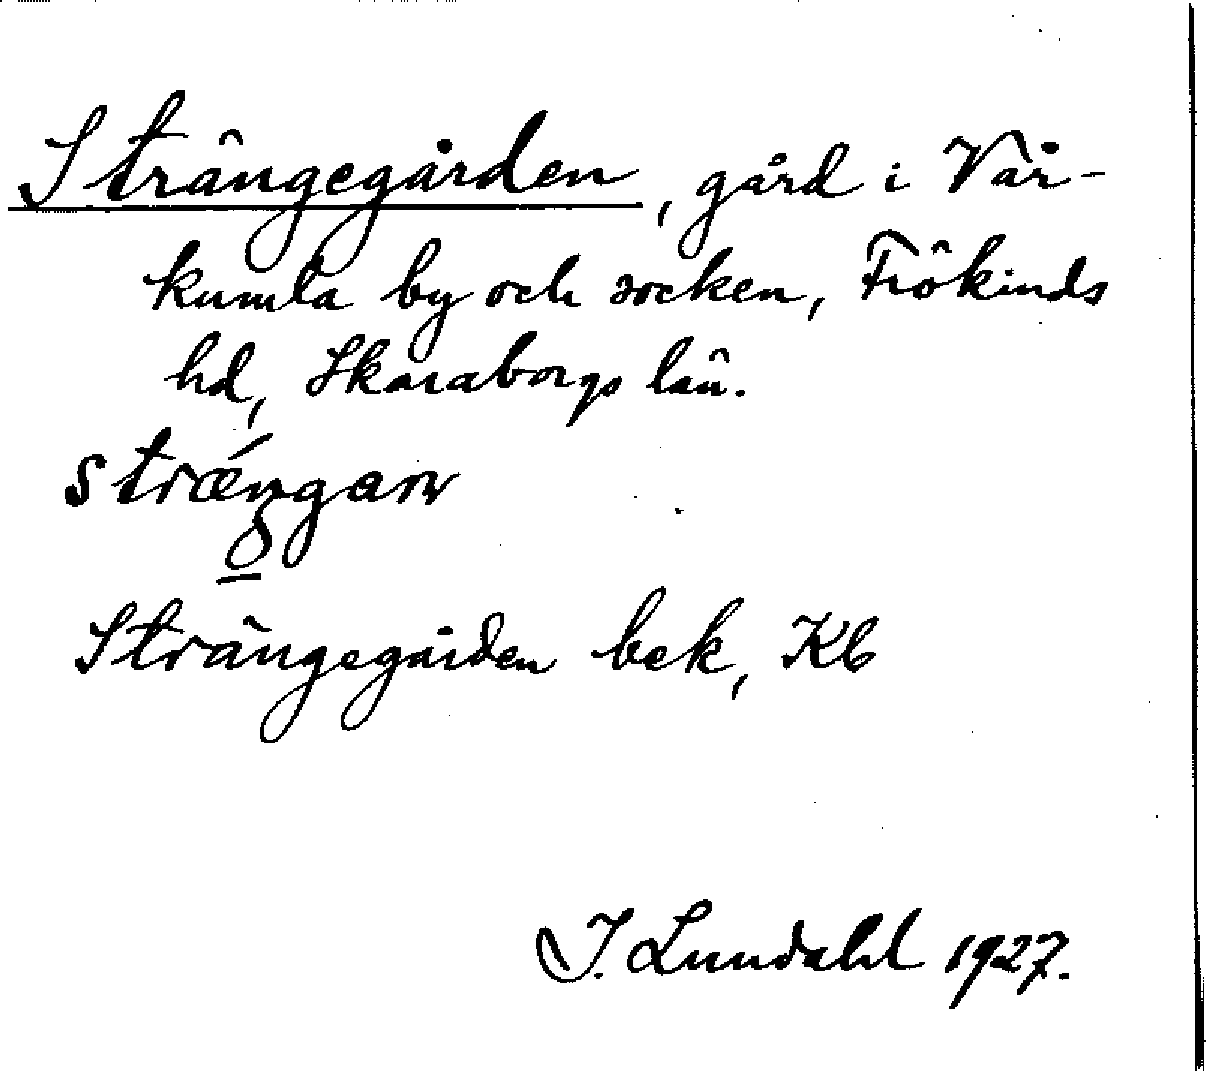 Strängegården, gård i Vår-
kumla by och socken, Frökinds
hd, Skaraborgs län.
Strängegården bek, Kb
I. Lundahl 1927.